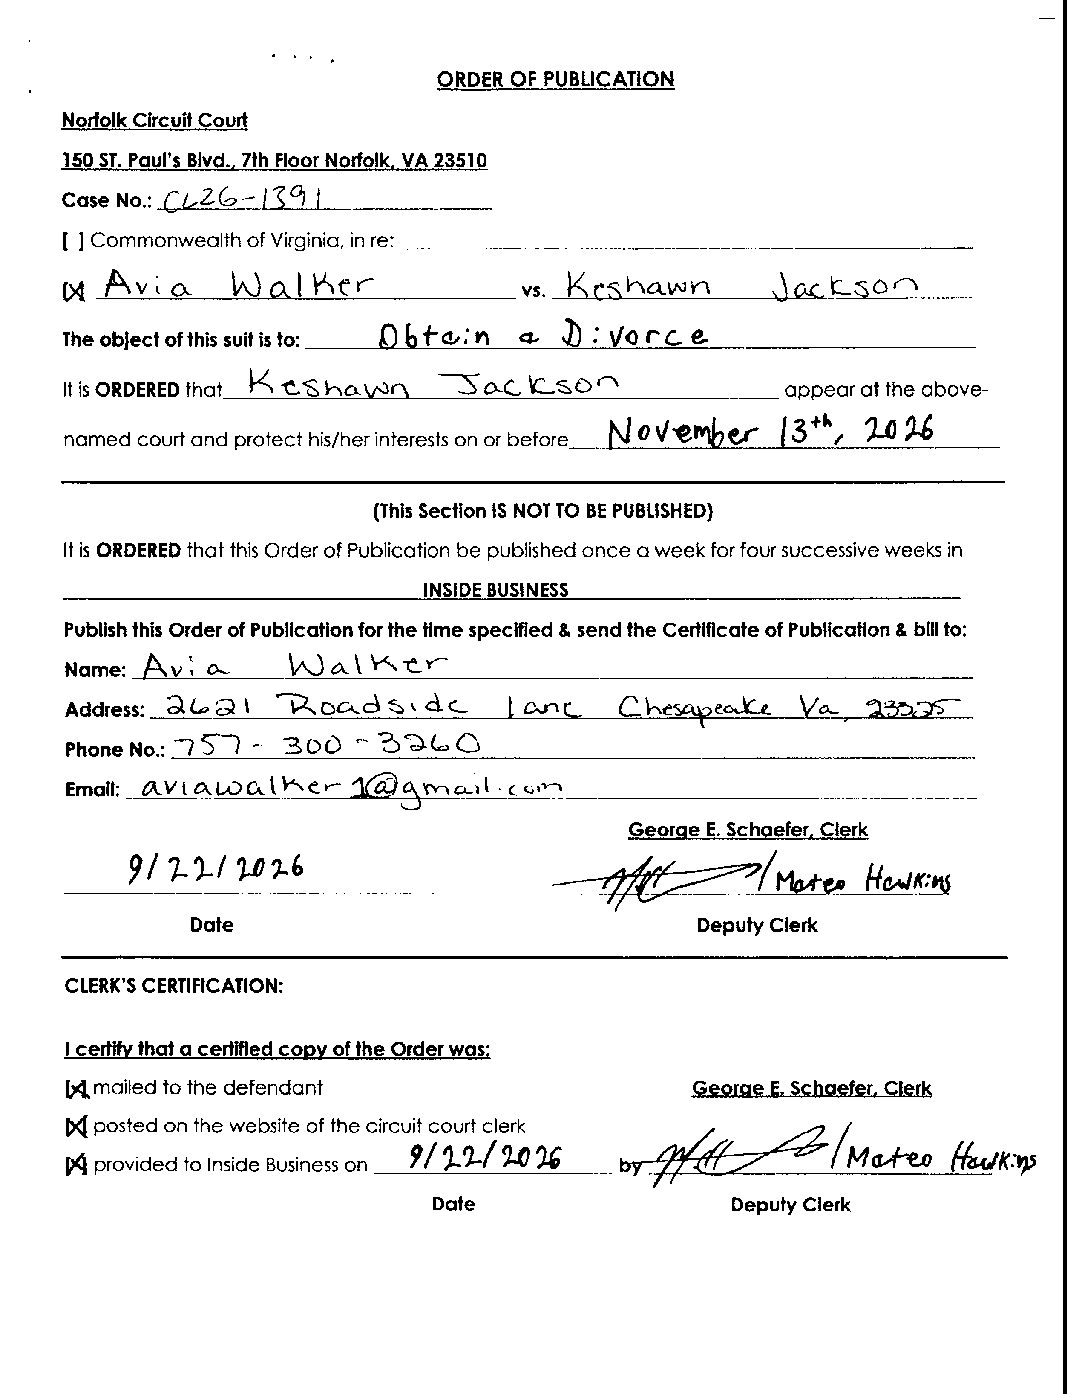 ORDER OF PUBLICATION
Norfolk Circuit Court
150 ST. Paul's Blvd., 7th Floor Norfolk, VA 23510
Case No.: CL26-1391
[ ] Commonwealth of Virginia, in re:
[X] Avia Walker vs. Keshawn Jackson
The object of this suit is to: Obtain a Divorce
It is ORDERED that Keshawn Jackson appear at the above-
named court and protect his/her interests on or before November 13th, 2026
(This Section IS NOT TO BE PUBLISHED)
It is ORDERED that this Order of Publication be published once a week for four successive weeks in
INSIDE BUSINESS
Publish this Order of Publication for the time specified & send the Certificate of Publication & bill to:
Name: Avia Walker
Address: 2621 Roadside lane Chesapeake Va, 23325
Phone No.: 757-300-3260
Email: aviawalker1@gmail.com
George E. Schaefer, Clerk
9/22/2026 /Mateo Hawkins
Date Deputy Clerk
CLERK'S CERTIFICATION:
I certify that a certified copy of the Order was:
[X] mailed to the defendant George E. Schaefer, Clerk
[X] posted on the website of the circuit court clerk
[X] provided to Inside Business on 9/22/2026 by /Mateo Hawkins
Date Deputy Clerk